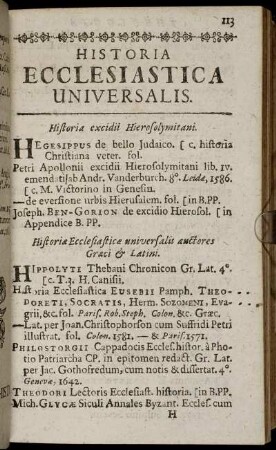 113
HISTORIA
ECCLESIASTICA
UNIVERSALIS.
Historia excidii Hierosolymitani.
HEGESIPPUS de bello Judaico. [ c. historia
Christiana veter. fol.
Petri Apollonii excidii Hierosolymitani lib. IV.
emendati ab Andr. Vanderburch. 8°. Leida, 1586.
[ c. M. Victorino in Genesin.
— de eversione urbis Hierusalem. fol. [ in B.PP.
Joseph. BEN-GORION de excidio Hierosol. [ in
Appendice B. PP.
Historiæ Ecclesiasticæ universalis auctores
Græci & Latini.
HIPPOLYTI Thebani Chronicon Gr. Lat. 4°.
[ c. T.3. H. Canisii.
Historia Ecclesiastica EUSEBII Pamph. THEO-
DORETI, SOCRATIS, Herm. SOZOMENI, Eva-
grii, &c. fol. Paris. Rob. Steph. Colon. &c. Græc.
—Lat. per Joan. Christophorson cum Suffridi Petri
illustrat. fol. Colon. 1581. — & Paris. 1571.
PHILOSTORGII Cappadocis Eccles. histor. à Pho-
tio Patriarcha CP. in epitomen redact. Gr. Lat.
per Jac. Gothofredum, cum notis & dissertat. 4°.
Genevæ, 1642.
THEODORI Lectoris Ecclesiast. historia. [ in B.PP.
Mich. GLYCÆ Siculi Annales Byzant. Eccles. cum
H